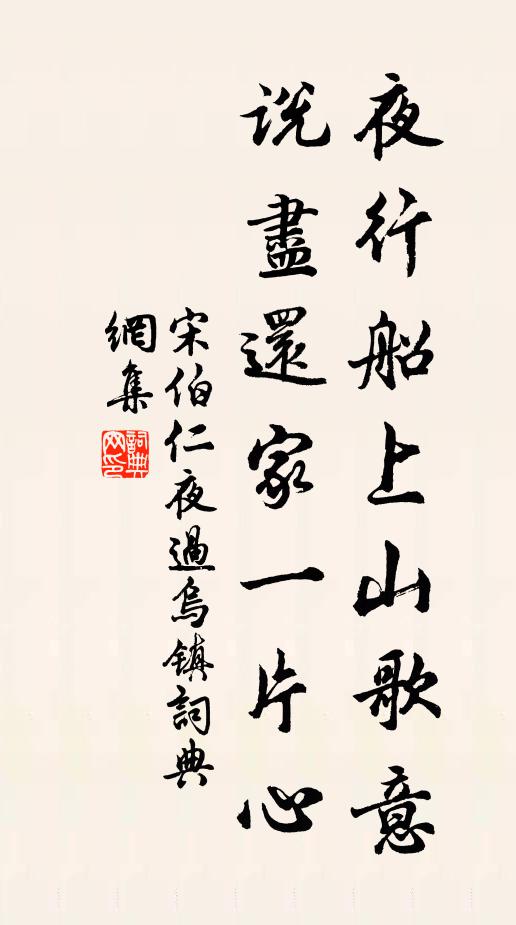 夜行船上山歌意
説盡還家一片心
宋伯仁夜過烏鎮詞典
網集
詞典
网印